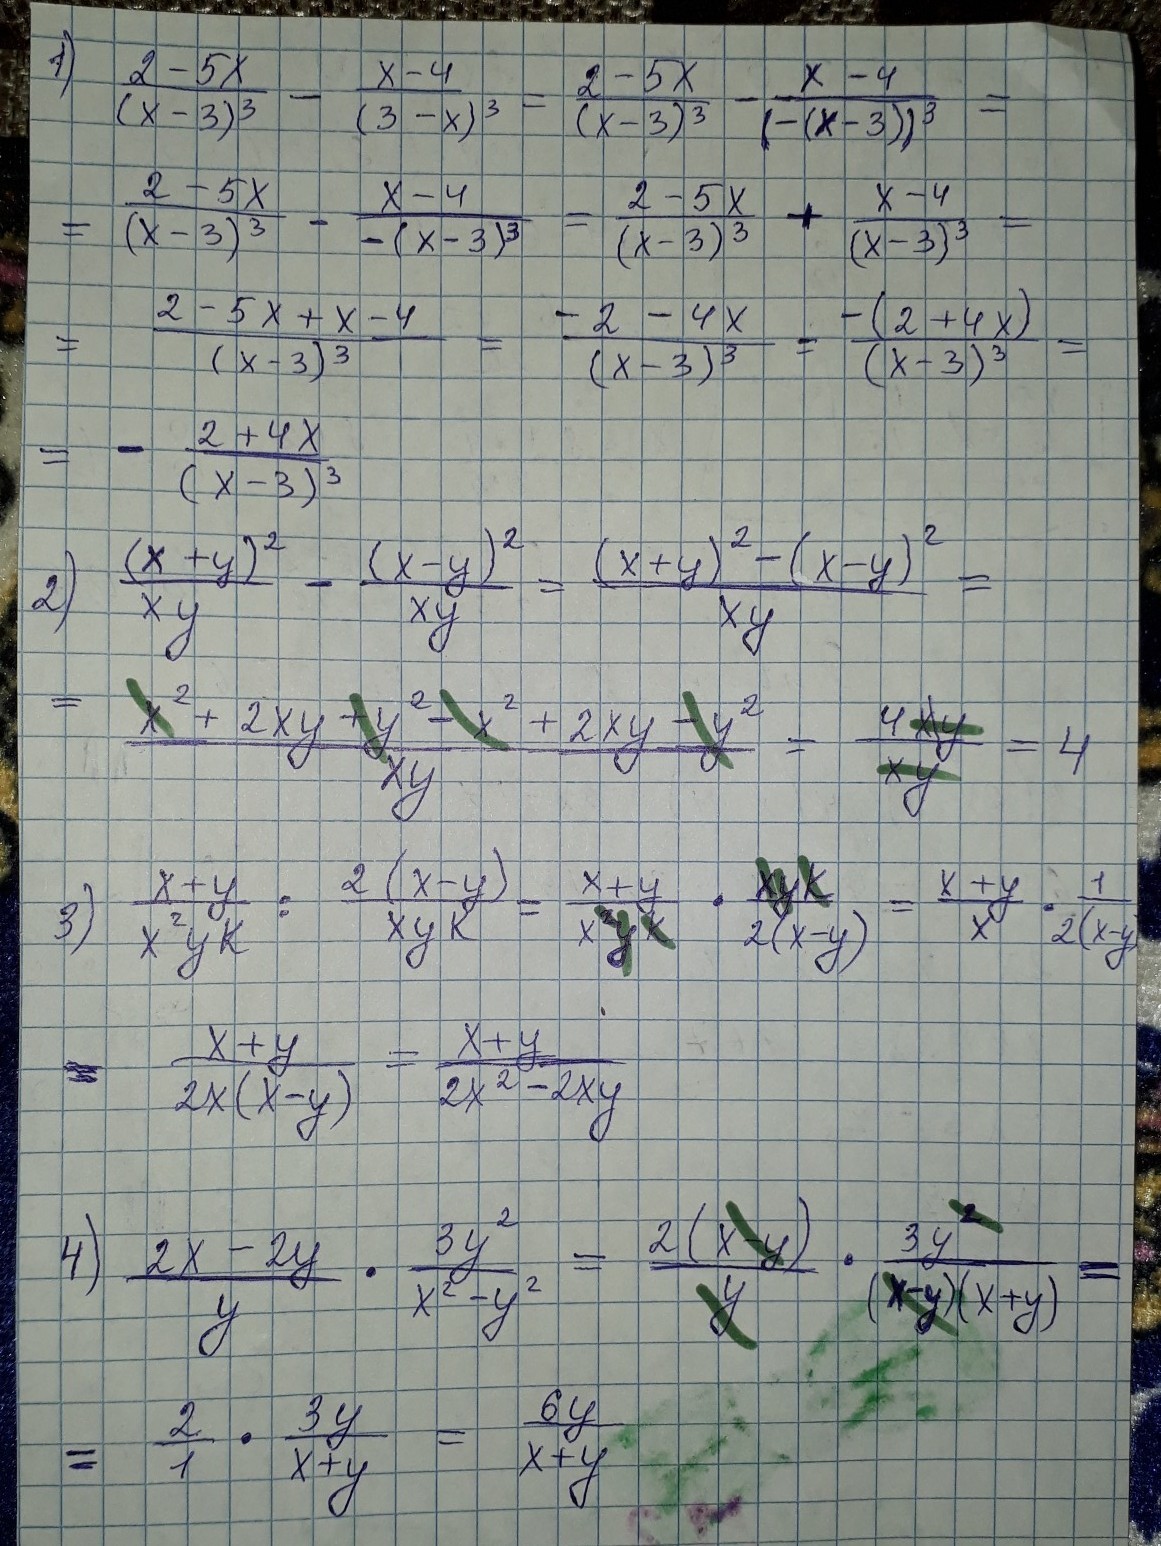 1) (2-5x)/(x-3)³ - (x-4)/(3-x)³ = (2-5x)/(x-3)³ - (x-4)/(-(x-3))³ =
= (2-5x)/(x-3)³ - (x-4)/-(x-3)³ = (2-5x)/(x-3)³ + (x-4)/(x-3)³ =
= (2-5x+x-4)/(x-3)³ = (-2-4x)/(x-3)³ = -(2+4x)/(x-3)³ =
= - (2+4x)/(x-3)³
2) (x+y)²/xy - (x-y)²/xy = ((x+y)²-(x-y)²)/xy =
= (x²+2xy+y²-x²+2xy-y²)/xy = 4xy/xy = 4
3) (x+y)/x²yk : 2(x-y)/xyk = (x+y)/x²yk · xyk/2(x-y) = (x+y)/x · 1/2(x-y)
= (x+y)/2x(x-y) = (x+y)/(2x²-2xy)
4) (2x-2y)/y · 3y²/(x²-y²) = 2(x-y)/y · 3y²/(x-y)(x+y) =
= 2/1 · 3y/(x+y) = 6y/(x+y)